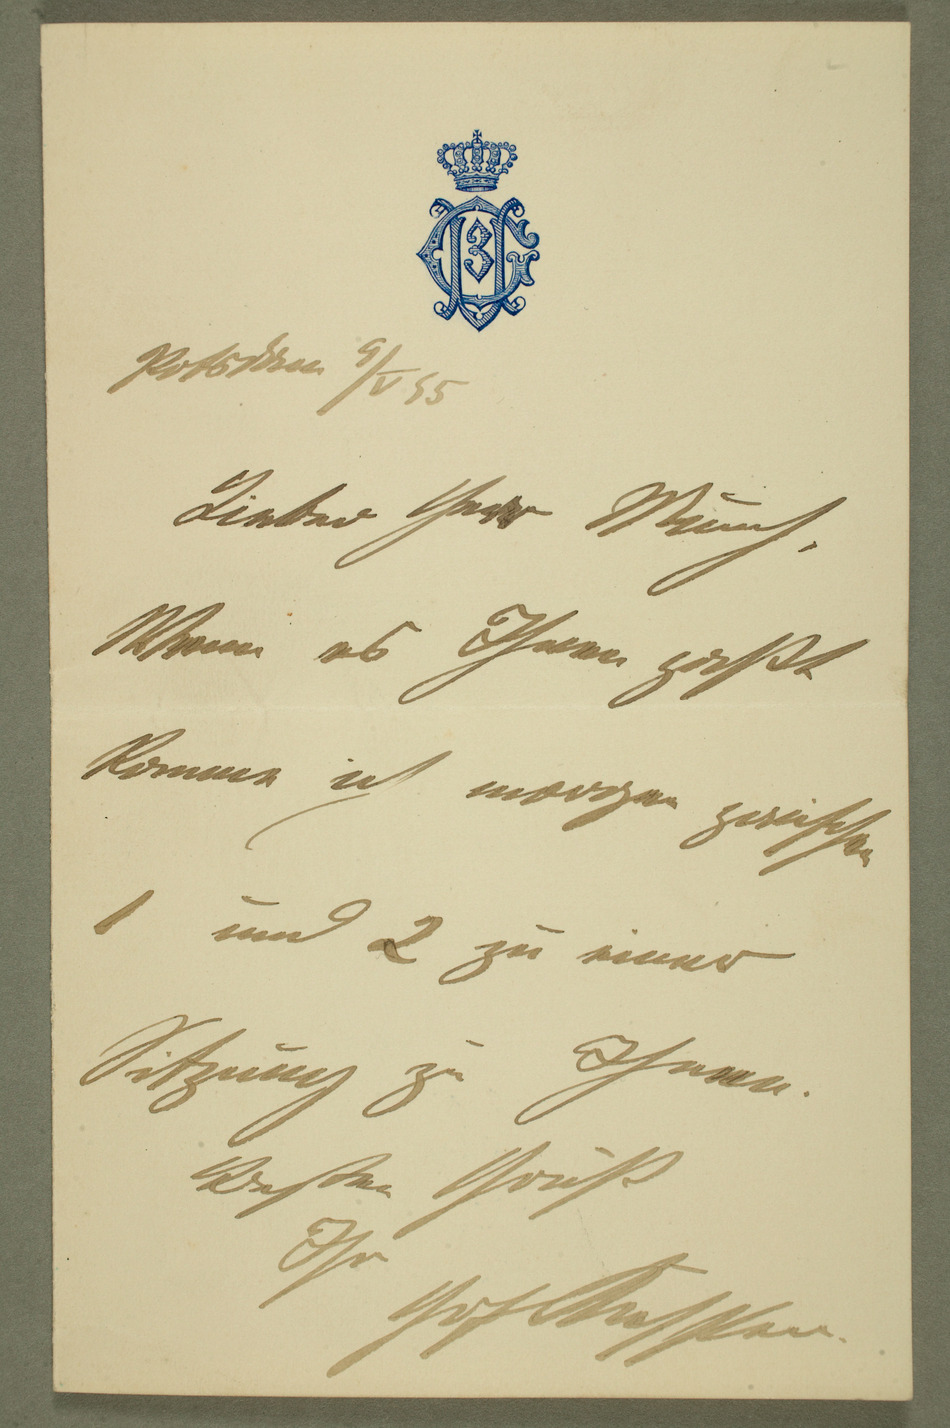 Potsdam 9/V 95
Lieber Herr Munch,
Wenn es Ihnen paßt
komme ich morgen zwischen
1 und 2 zu einer
Sitzung zu Ihnen.
Besten Gruß
Ihr